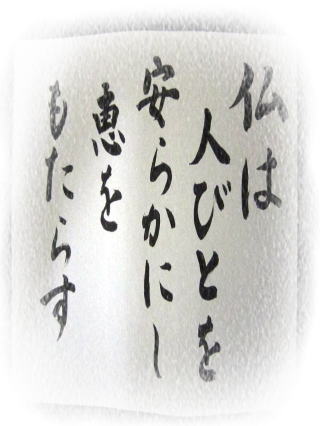 仏は
人びとを
安らかにし
恵を
もたらす